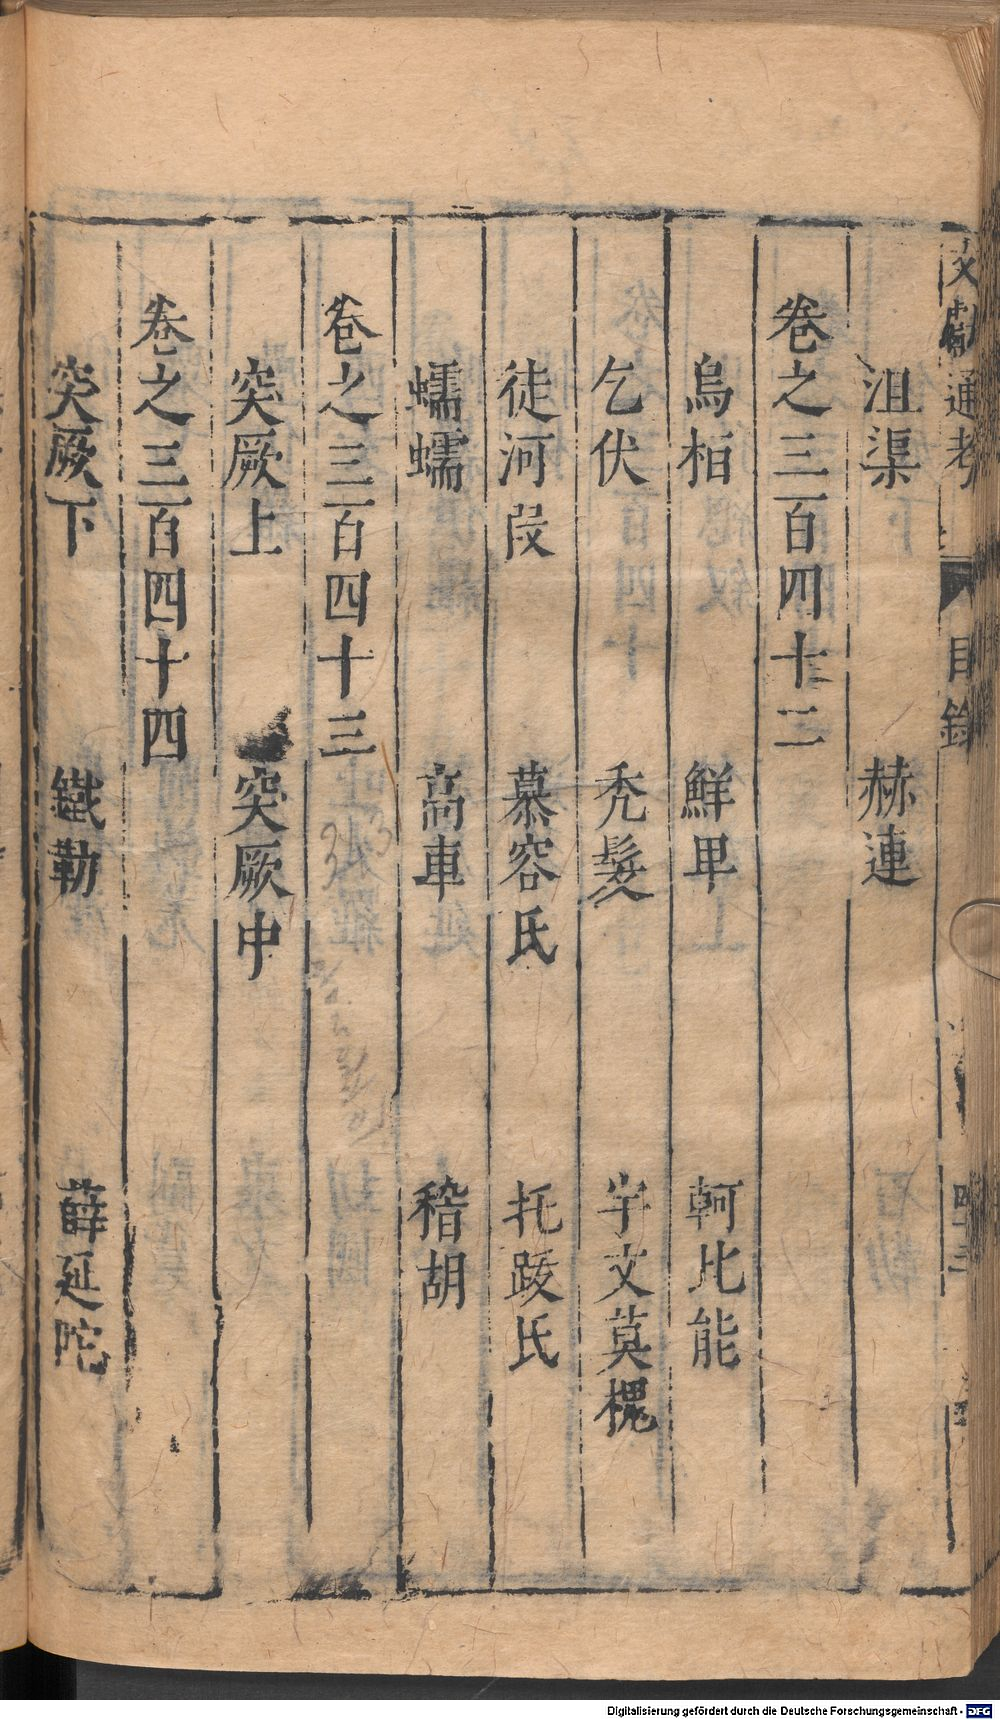 文獻通考
目錄
沮渠 赫連
卷之三百四十二
烏桓 鮮卑 軻比能
乞伏 禿髮 宇文莫槐
徒河段 慕容氏 托跋氏
蠕蠕 高車 稽胡
卷之三百四十三
突厥上 突厥中
卷之三百四十四
突厥下 鐵勒 薛延陀
Digitalisierung gefördert durch die Deutsche Forschungsgemeinschaft - DFG